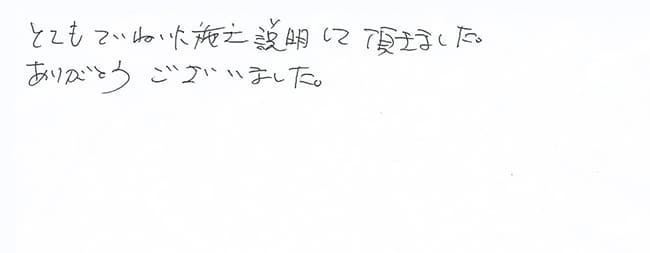 とてもていねいに施工説明して頂きました。
ありがとうございました。